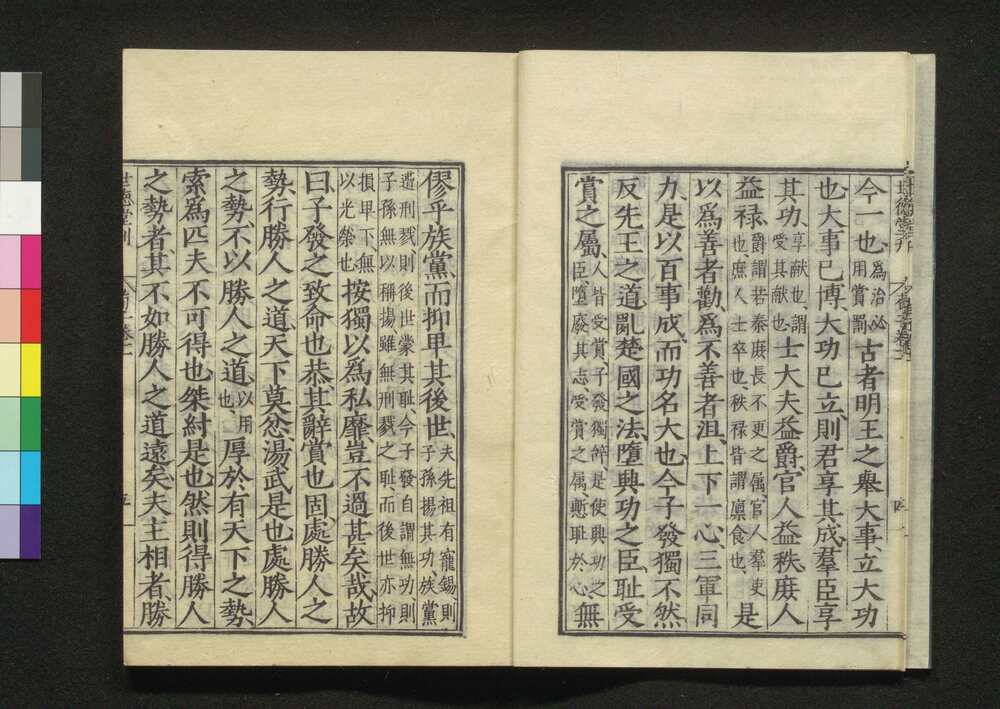 今一也、為治必用賞罰古者明王之舉大事、立大功
也、大事已博、大功已立、則君享其成、羣臣享
其功、享獻也、謂受其獻也士大夫益爵、官人益秩、庶人
益祿、爵謂若秦庶長不更之属、官人羣吏也、庶人士卒也、秩禄皆謂廪食也、是
以爲善者勸、爲不善者沮、上下一心、三軍同
力、是以百事成、而功名大也、今子發獨不然
反先王之道、亂楚國之法、墮興功之臣、耻受
賞之屬、人皆受賞、子發獨辭、是使興功之臣、墮廢其志、受賞之属、慙耻於心無
四
僇乎族黨、而抑卑其後世、夫先祖有寵錫、則子孫揚其功、族黨
遭刑戮、則後世蒙其耻、今子發自謂無功、則子孫無以稱揚、雖無刑戮之耻、而後世亦抑
損卑下、無以光榮也按獨以爲私廉、豈不過甚矣哉、故
曰、子發之致命也恭、其辭賞也固、處勝人之
勢、行勝人之道、天下莫忿、湯武是也、處勝人
之勢、不以勝人之道、以用也、厚於有天下之勢、
索爲匹夫、不可得也、桀紂是也、然則得勝人
之勢者、其不如勝人之道遠矣、夫主相者、勝
世德堂刊